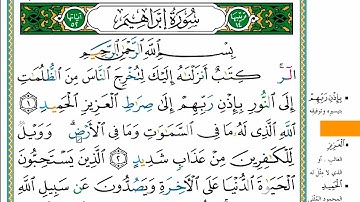 سُورَةُ إِبْرَاهِيمَ
بِسْمِ اللَّهِ الرَّحْمَٰنِ الرَّحِيمِ
الٓر ۚ كِتَٰبٌ أَنزَلْنَٰهُ إِلَيْكَ لِتُخْرِجَ النَّاسَ مِنَ الظُّلُمَٰتِ
إِلَى النُّورِ بِإِذْنِ رَبِّهِمْ إِلَىٰ صِرَٰطِ الْعَزِيزِ الْحَمِيدِ ١
اللَّهِ الَّذِى لَهُ مَا فِى السَّمَٰوَٰتِ وَمَا فِى الْأَرْضِ ۗ وَوَيْلٌ
لِّلْكَٰفِرِينَ مِنْ عَذَابٍ شَدِيدٍ ٢ الَّذِينَ يَسْتَحِبُّونَ
الْحَيَوٰةَ الدُّنْيَا عَلَى الْآخِرَةِ وَيَصُدُّونَ عَن سَبِيلِ اللَّهِ
بِإِذْنِ رَبِّهِمْ
بتيسيره وتوفيقه
الْعَزِيزِ
الغالب، أو
الْحَمِيدِ